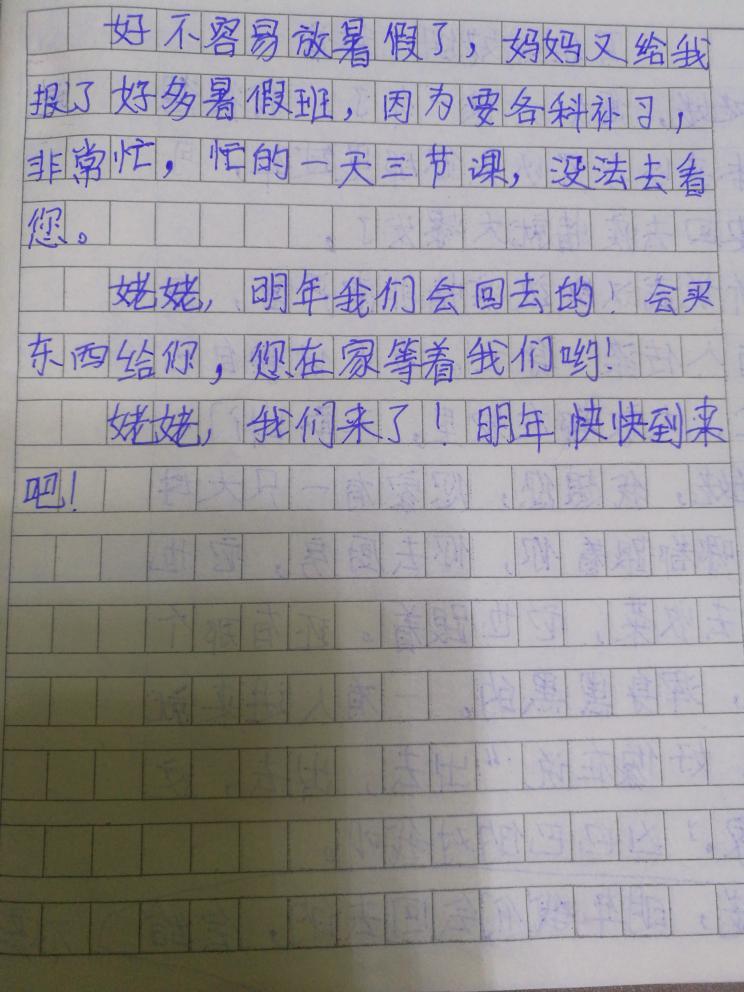 好不容易放暑假了，妈妈又给我
报了好多暑假班，因为要各科补习，
非常忙，忙的一天三节课，没法去看
您。
姥姥，明年我们会回去的！会买
东西给你，您在家等着我们哟！
姥姥，我们来了！明年快快到来
吧！